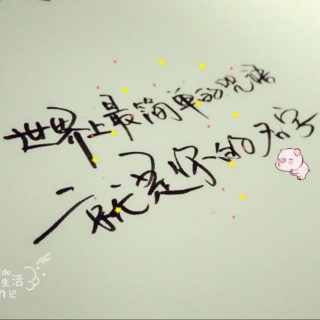 世界上最简单的咒语
就是你的名字
de
生活
记